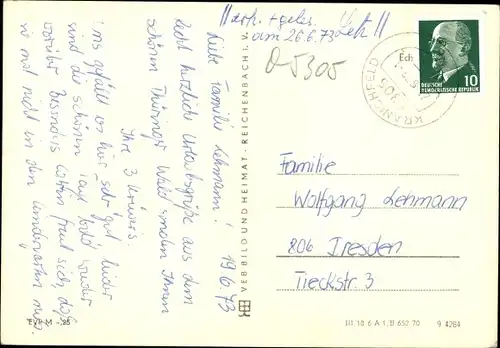 "erh. + gelesen
am 26.6.73
O-5305
Liebe Familie Lehmann!
19.6.73
Recht herzliche Urlaubsgrüße aus dem
schönen Thüringer Wald senden Ihnen
Ihre 3
Uns gefällt es hier sehr gut, leider
sind die schönen Tage bald wieder
vorüber. Besonders freut sich, daß
er mal nicht in den Kindergarten muß.
VEB BILD UND HEIMAT · REICHENBACH I. V.
5305
KRANICHFELD
10
DEUTSCHE
DEMOKRATISCHE REPUBLIK
Familie
Wolfgang Lehmann
806 Dresden
Tieckstr. 3
EVP M -,25
III 18 6 A 1/B 652 70 9 4284